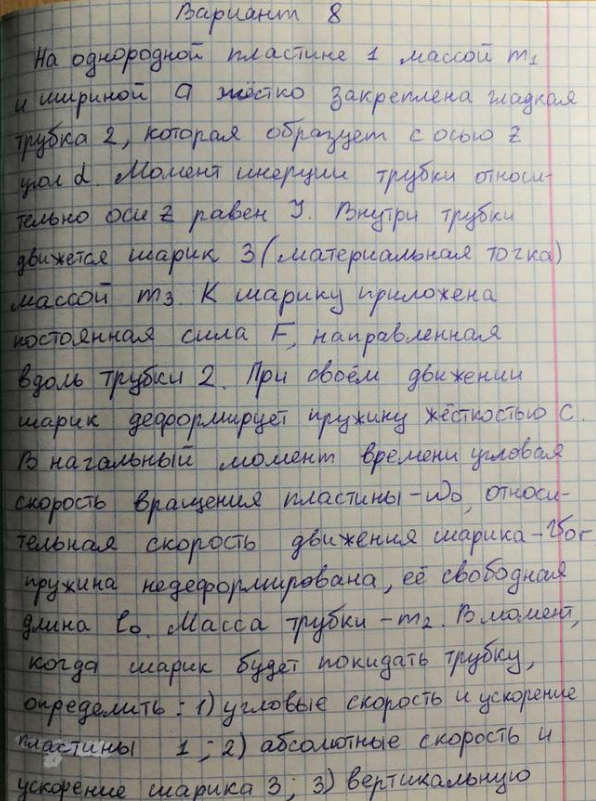 Вариант 8
На однородной пластине 1 массой m₁
и шириной a жёстко закреплена гладкая
трубка 2, которая образует с осью z
угол α. Момент инерции трубки относи-
тельно оси z равен J. Внутри трубки
движется шарик 3 (материальная точка)
массой m₃. К шарику приложена
постоянная сила F, направленная
вдоль трубки 2. При своём движении
шарик деформирует пружину жёсткостью c.
В начальный момент времени угловая
скорость вращения пластины - ω₀, относи-
тельная скорость движения шарика - V₀r
пружина недеформирована, её свободная
длина l₀. Масса трубки - m₂. В момент,
когда шарик будет покидать трубку,
определить: 1) угловые скорость и ускорение
пластины 1; 2) абсолютные скорость и
ускорение шарика 3; 3) вертикальную